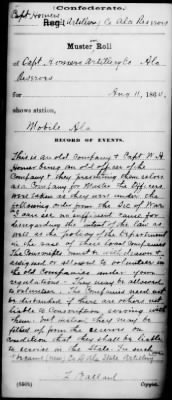 (Confederate.)
Capt. Homer's
(Artillery) Co Ala Reserves
Muster Roll
of Capt. Homers Artillery Co. Ala
Reserves
for Aug 11, 186
shows station,
Mobile Ala
RECORD OF EVENTS.
This is an old Company & Capt W. H.
Homer being an old officer of the
Company & they presenting themselves
as a Company for Muster the Officers
were taken as they were under the
following order from the Sec of War
I can see no sufficient cause for
disregarding the intent of the law as
well as the policy of the Department
in the case of these local Companies
The Conscripts must be withdrawn &
assigned or allowed to volunteer in
the old Companies under your
regulations. They may be allowed
to volunteer. The Companies need not
be disturbed if there are others not
liable to Conscription serving with
them. but instead they may be
filled up from the reserves on
condition that they shall be liable
to service in the State.
(6505)
Copyist.